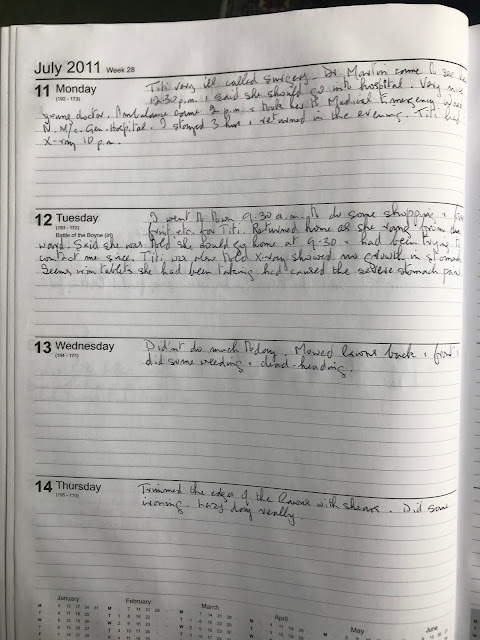 July 2011 Week 28
11 Monday
(192 - 173)
Titi very ill called surgery. Dr. Marton came to see her
12.30 p.m. & said she should go into hospital. Very nice
young doctor. Ambulance came 2 p.m. & took her to Medical Emergency ward
N. M/c. Gen. Hospital. I stayed 3 hours, returned in the evening. Titi had
X-ray 10 p.m.
12 Tuesday
(193 - 172)
Battle of the Boyne (ni)
I went to town 9.30 a.m. to do some shopping &
fruit etc. for Titi. Returned home as she rang from the
ward. Said she was told she could go home at 9.30 & had been trying to
contact me since. Titi was also told X-ray showed no growth in stomach
Seems iron tablets she had been taking had caused the severe stomach pain
13 Wednesday
(194 - 171)
Did'nt do much today. Mowed lawns back & front &
did some weeding & dead-heading.
14 Thursday
(195 - 170)
Trimmed the edges of the lawns with shears. Did some
ironing. Lazy day really
January
February
March
April
May
June